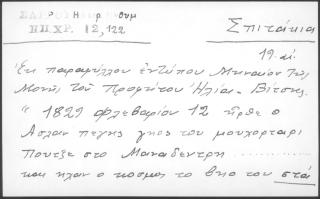 ΠΠ.ΧΡ. 12, 122
Σπιτάκια
19. αἰ.
Ἐκ παραφύλλου ἐντύπου Μηναίου τῆς
Μονῆς τοῦ Προφήτου Ἠλία - Βίτσης.
"1829 φλεβαρίου 12 ἦρθε ο
Ασλαν πεγης γηος του μουχορταρι
Πουτζε στο Μαναδεντρη
και ηλαν ο κοσμος το βηο του στά